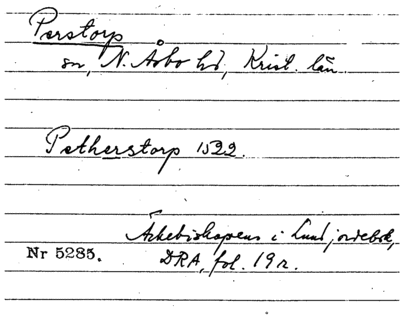 Perstorp
sn, N. Åsbo hd, Krist. län
Petherstorp 1522.
Ärkebiskopens i Lund jordebok,
Nr 5285.
DRA, fol. 19 r.